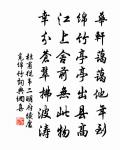 華軒藹藹他年到
綿竹亭亭出縣高
江上舍前無此物
幸分蒼翠拂波濤
杜甫從韋二明府續處
覓綿竹